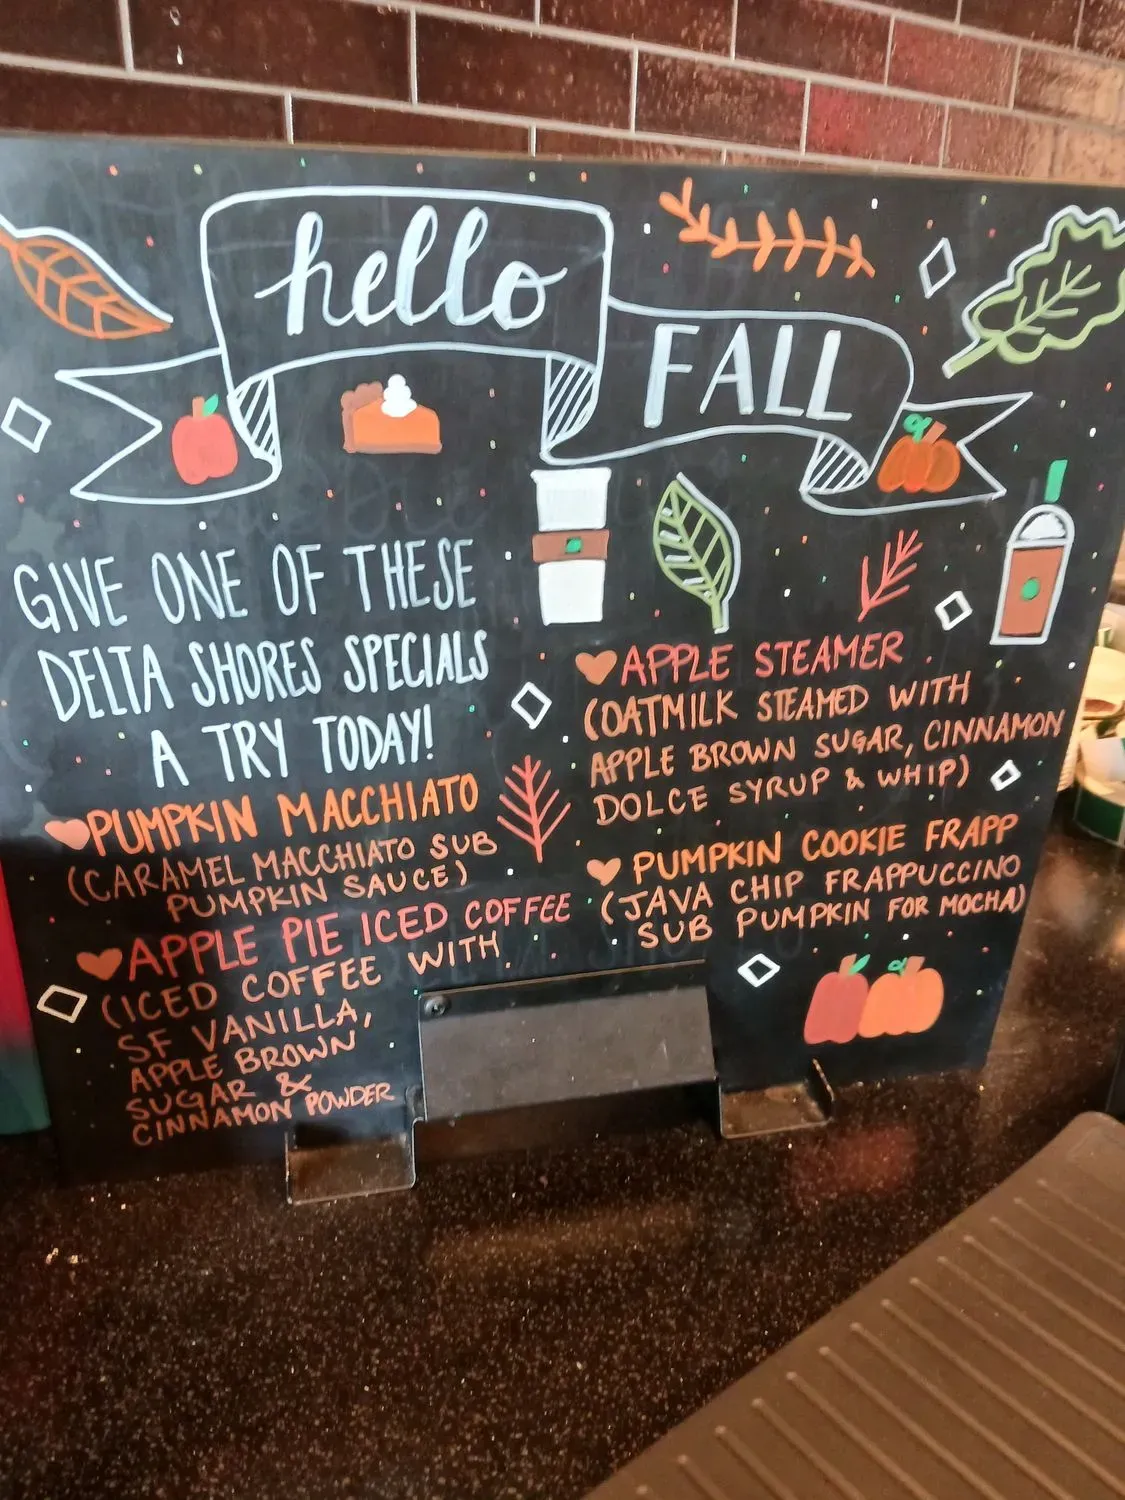 hello
FALL
GIVE ONE OF THESE
DELTA SHORES SPECIALS
A TRY TODAY!
PUMPKIN MACCHIATO
(CARAMEL MACCHIATO SUB
PUMPKIN SAUCE)
APPLE PIE ICED COFFEE
(ICED COFFEE WITH
SF VANILLA,
APPLE BROWN
SUGAR &
CINNAMON POWDER
APPLE STEAMER
(OATMILK STEAMED WITH
APPLE BROWN SUGAR, CINNAMON
DOLCE SYRUP & WHIP)
PUMPKIN COOKIE FRAPP
(JAVA CHIP FRAPPUCCINO
SUB PUMPKIN FOR MOCHA)